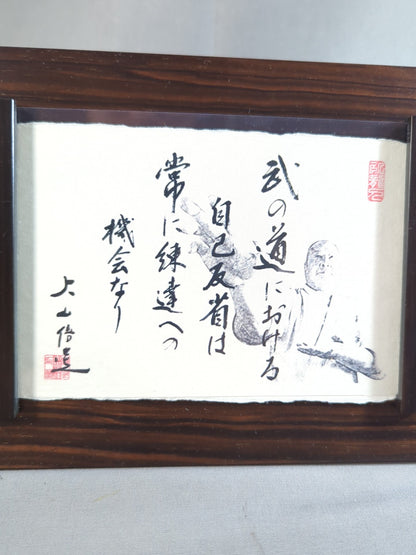 武の道における
自己反省は
常に練達への
機会なり
大山倍達